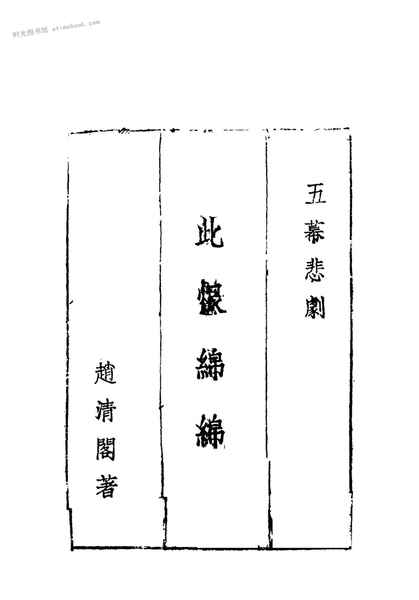 时光图书馆 etimebook.com
五幕悲劇
此恨綿綿
趙清閣著